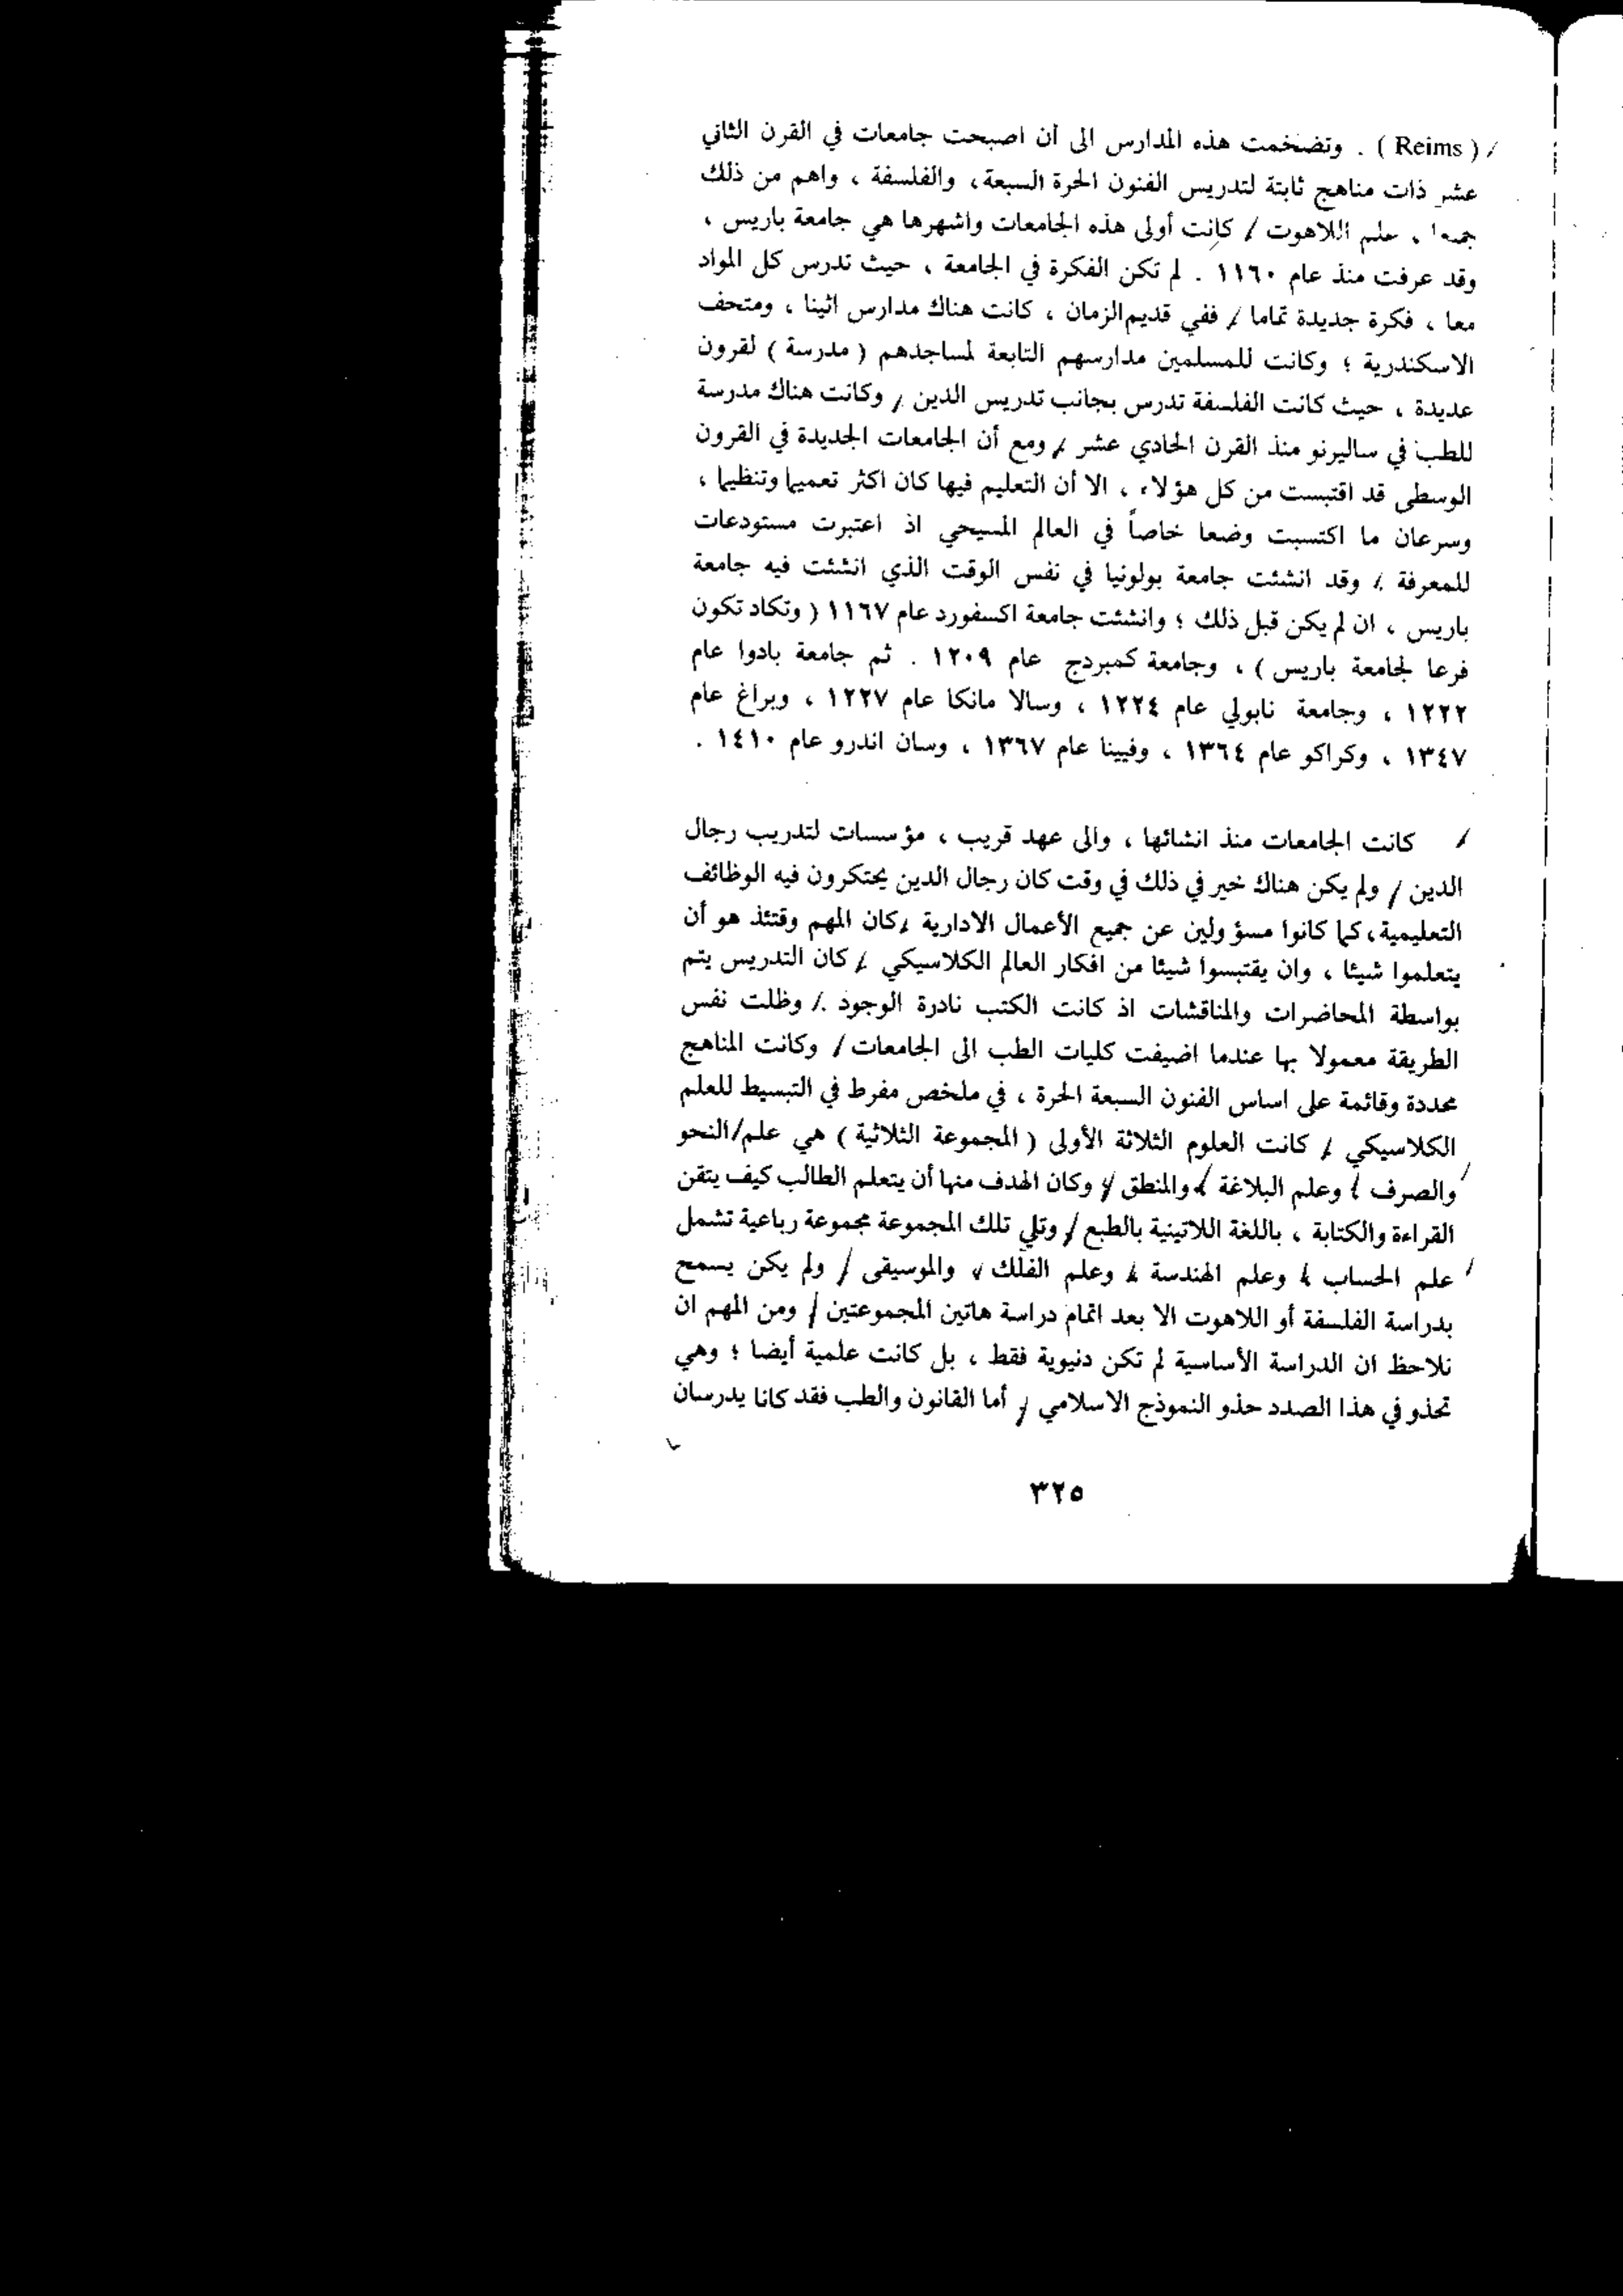 ( Reims ) . وتضخمت هذه المدارس الى أن اصبحت جامعات في القرن الثاني
عشر ذات مناهج ثابتة لتدريس الفنون الحرة السبعة، والفلسفة ، واهم من ذلك
جميعا ، علم اللاهوت / كانت أولى هذه الجامعات واشهرها هي جامعة باريس ،
وقد عرفت منذ عام ١١٦٠ . لم تكن الفكرة في الجامعة ، حيث تدرس كل المواد
معا ، فكرة جديدة تماما / ففي قديم الزمان ، كانت هناك مدارس اثينا ، ومتحف
الاسكندرية ؛ وكانت للمسلمين مدارسهم التابعة لمساجدهم ( مدرسة ) لقرون
عديدة ، حيث كانت الفلسفة تدرس بجانب تدريس الدين / وكانت هناك مدرسة
للطب في ساليرنو منذ القرن الحادي عشر / ومع أن الجامعات الجديدة في القرون
الوسطى قد اقتبست من كل هؤلاء ، الا أن التعليم فيها كان اكثر تعميما وتنظيما ،
وسرعان ما اكتسبت وضعا خاصاً في العالم المسيحي اذ اعتبرت مستودعات
للمعرفة / وقد انشئت جامعة بولونيا في نفس الوقت الذي انشئت فيه جامعة
باريس ، ان لم يكن قبل ذلك ؛ وانشئت جامعة اكسفورد عام ١١٦٧ ( وتكاد تكون
فرعا لجامعة باريس ) ، وجامعة كمبردج عام ١٢٠٩ . ثم جامعة بادوا عام
١٢٢٢ ، وجامعة نابولي عام ١٢٢٤ ، وسالا مانكا عام ١٢٢٧ ، وبراغ عام
١٣٤٧ ، وكراكو عام ١٣٦٤ ، وفيينا عام ١٣٦٧ ، وسان اندرو عام ١٤١٠ .
/ كانت الجامعات منذ انشائها ، والى عهد قريب ، مؤسسات لتدريب رجال
الدين / ولم يكن هناك خير في ذلك في وقت كان رجال الدين يحتكرون فيه الوظائف
التعليمية، كما كانوا مسؤولين عن جميع الأعمال الادارية / كان المهم وقتئذ هو أن
يتعلموا شيئا ، وان يقتبسوا شيئا من افكار العالم الكلاسيكي / كان التدريس يتم
بواسطة المحاضرات والمناقشات اذ كانت الكتب نادرة الوجود / وظلت نفس
الطريقة معمولا بها عندما اضيفت كليات الطب الى الجامعات / وكانت المناهج
محددة وقائمة على اساس الفنون السبعة الحرة ، في ملخص مفرط في التبسيط للعلم
الكلاسيكي / كانت العلوم الثلاثة الأولى ( المجموعة الثلاثية ) هي علم/النحو
والصرف / وعلم البلاغة / والمنطق / وكان الهدف منها أن يتعلم الطالب كيف يتقن
القراءة والكتابة ، باللغة اللاتينية بالطبع / وتلي تلك المجموعة مجموعة رباعية تشمل
علم الحساب / وعلم الهندسة / وعلم الفلك / والموسيقى / ولم يكن يسمح
بدراسة الفلسفة أو اللاهوت الا بعد اتمام دراسة هاتين المجموعتين / ومن المهم ان
نلاحظ ان الدراسة الأساسية لم تكن دنيوية فقط ، بل كانت علمية أيضا ؛ وهي
تحذو في هذا الصدد حذو النموذج الاسلامي / أما القانون والطب فقد كانا يدرسان
٣٢٥